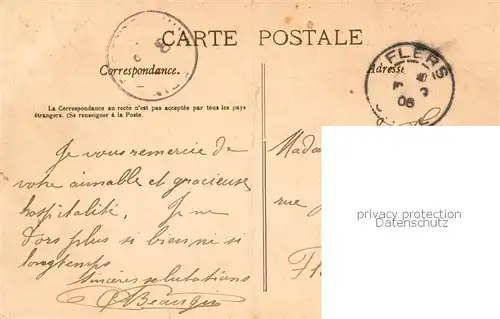 CARTE POSTALE
Correspondance.
Adresse
FLERS
06
La Correspondance au recto n'est pas acceptée par tous les pays
étrangers. (Se renseigner à la Poste.
Je vous remercie de
votre aimable et gracieuse
hospitalité. Je ne
dors plus si bien ni si
longtemps
Sincères salutations
Mada
rue
privacy protection
Datenschutz